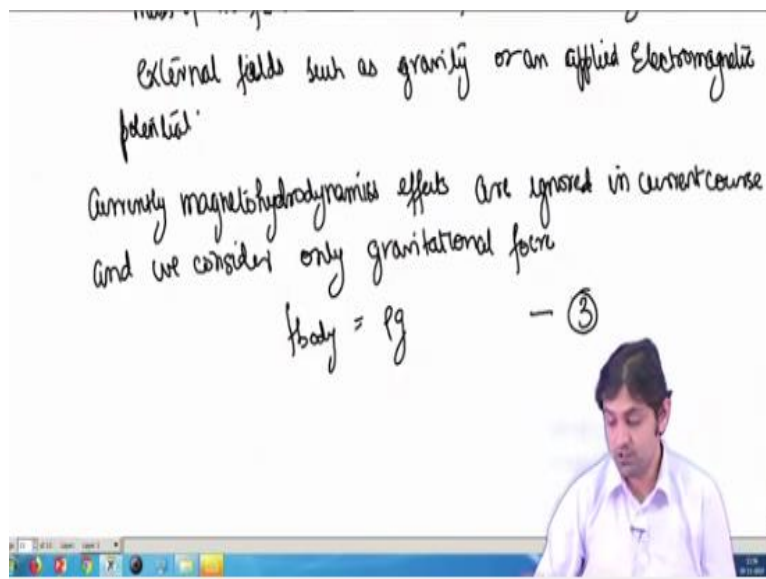 external fields such as gravity or an applied Electromagnetic
potential.
Currently magnetohydrodynamics effects are ignored in current course
and we consider only gravitational force
fbody = ρg — ③